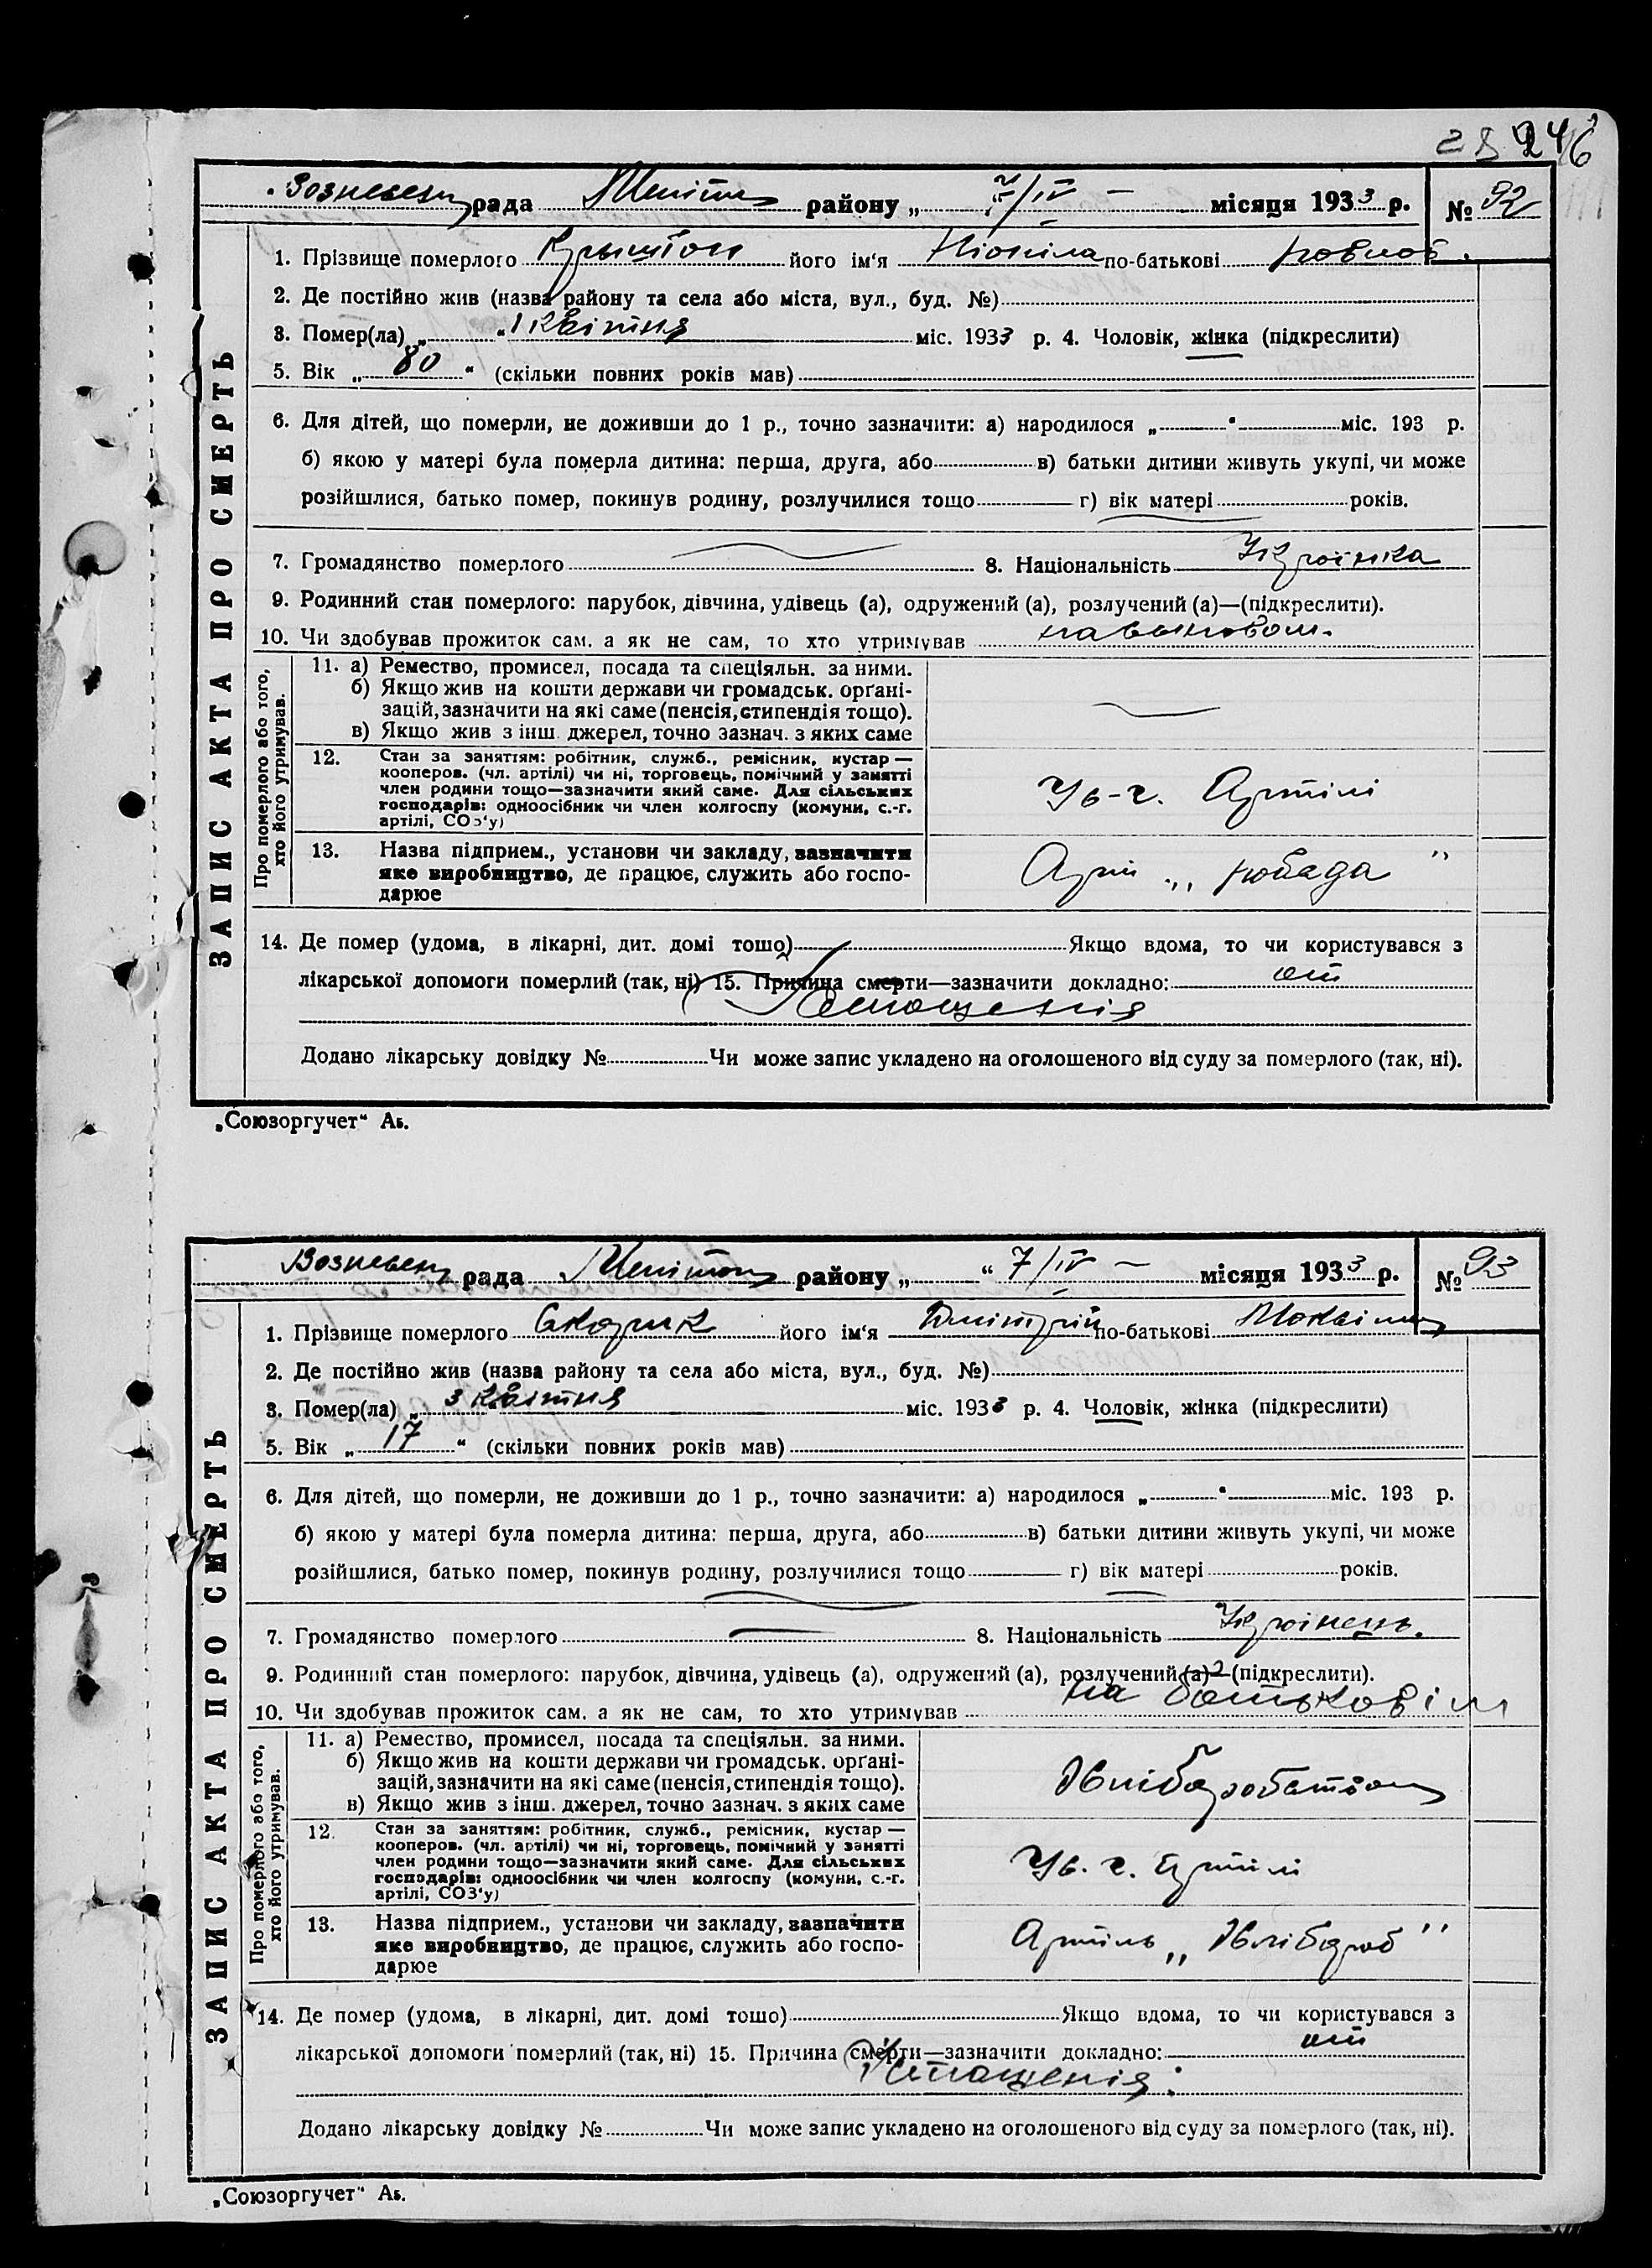 246
Вознесен рада Меліт району „ 7/IV — місяця 1933 р. № 92
ЗАПИС АКТА ПРО СМЕРТЬ
1. Прізвище померлого його ім‘я по-батькові
2. Де постійно жив (назва району та села або міста, вул., буд. №)
3. Помер(ла) „ “ 1 квітня міс. 1933 р. 4. Чоловік, жінка (підкреслити)
5. Вік „ 80 “ (скільки повних років мав)
6. Для дітей, що померли, не доживши до 1 р., точно зазначити: а) народилося „ “ міс. 193 р.
б) якою у матері була померла дитина: перша, друга, або в) батьки дитини живуть укупі, чи може
розійшлися, батько помер, покинув родину, розлучилися тощо г) вік матері років.
7. Громадянство померлого 8. Національність Українка
9. Родинний стан померлого: парубок, дівчина, удівець (а), одружений (а), розлучений (а)—(підкреслити).
10. Чи здобував прожиток сам, а як не сам, то хто утримував
Про померлого або того,
хто його утримував.
11. а) Ремество, промисел, посада та спеціяльн. за ними.
б) Якщо жив на кошти держави чи громадськ. орґані-
зацій, зазначити на які саме (пенсія, стипендія тощо).
в) Якщо жив з інш. джерел, точно зазнач. з яких саме
12. Стан за заняттям: робітник, служб., ремісник, кустар —
кооперов. (чл. артілі) чи ні, торговець, помічний у занятті
член родини тощо—зазначити який саме. Для сільських
господарів: одноосібник чи член колгоспу (комуни, с.-г.
артілі, СОЗ‘у)
Чл-г. Артілі
13. Назва підприєм., установи чи закладу, зазначити
яке виробництво, де працює, служить або госпо-
дарює
Арт
14. Де помер (удома, в лікарні, дит. домі тощо) Якщо вдома, то чи користувався з
лікарської допомоги померлий (так, ні) 15. Причина смерти—зазначити докладно: от
істощенія
Додано лікарську довідку № Чи може запис укладено на оголошеного від суду за померлого (так, ні).
„Союзоргучет“ Аь.
Вознесен рада Меліт району „ “ 7/IV — місяця 1933 р. № 93
ЗАПИС АКТА ПРО СМЕРТЬ
1. Прізвище померлого Скорик його ім‘я Дмітрій по-батькові
2. Де постійно жив (назва району та села або міста, вул., буд. №)
3. Помер(ла) „ 3 квітня міс. 1933 р. 4. Чоловік, жінка (підкреслити)
5. Вік „ 17 “ (скільки повних років мав)
6. Для дітей, що померли, не доживши до 1 р., точно зазначити: а) народилося „ “ міс. 193 р.
б) якою у матері була померла дитина: перша, друга, або в) батьки дитини живуть укупі, чи може
розійшлися, батько помер, покинув родину, розлучилися тощо г) вік матері років.
7. Громадянство померлого 8. Національність Українець.
9. Родинний стан померлого: парубок, дівчина, удівець (а), одружений (а), розлучений (а)—(підкреслити).
10. Чи здобував прожиток сам, а як не сам, то хто утримував на
Про померлого або того,
хто його утримував.
11. а) Ремество, промисел, посада та спеціяльн. за ними.
б) Якщо жив на кошти держави чи громадськ. орґані-
зацій, зазначити на які саме (пенсія, стипендія тощо).
в) Якщо жив з інш. джерел, точно зазнач. з яких саме
12. Стан за заняттям: робітник, служб., ремісник, кустар —
кооперов. (чл. артілі) чи ні, торговець, помічний у занятті
член родини тощо—зазначити який саме. Для сільських
господарів: одноосібник чи член колгоспу (комуни, с.-г.
артілі, СОЗ‘у)
Чл. г. артілі
13. Назва підприєм., установи чи закладу, зазначити
яке виробництво, де працює, служить або госпо-
дарює
Артіль „ Хлібороб "
14. Де помер (удома, в лікарні, дит. домі тощо) Якщо вдома, то чи користувався з
лікарської допомоги померлий (так, ні) 15. Причина смерти—зазначити докладно: от
істощенія.
Додано лікарську довідку № Чи може запис укладено на оголошеного від суду за померлого (так, ні).
„Союзоргучет“ Аь.